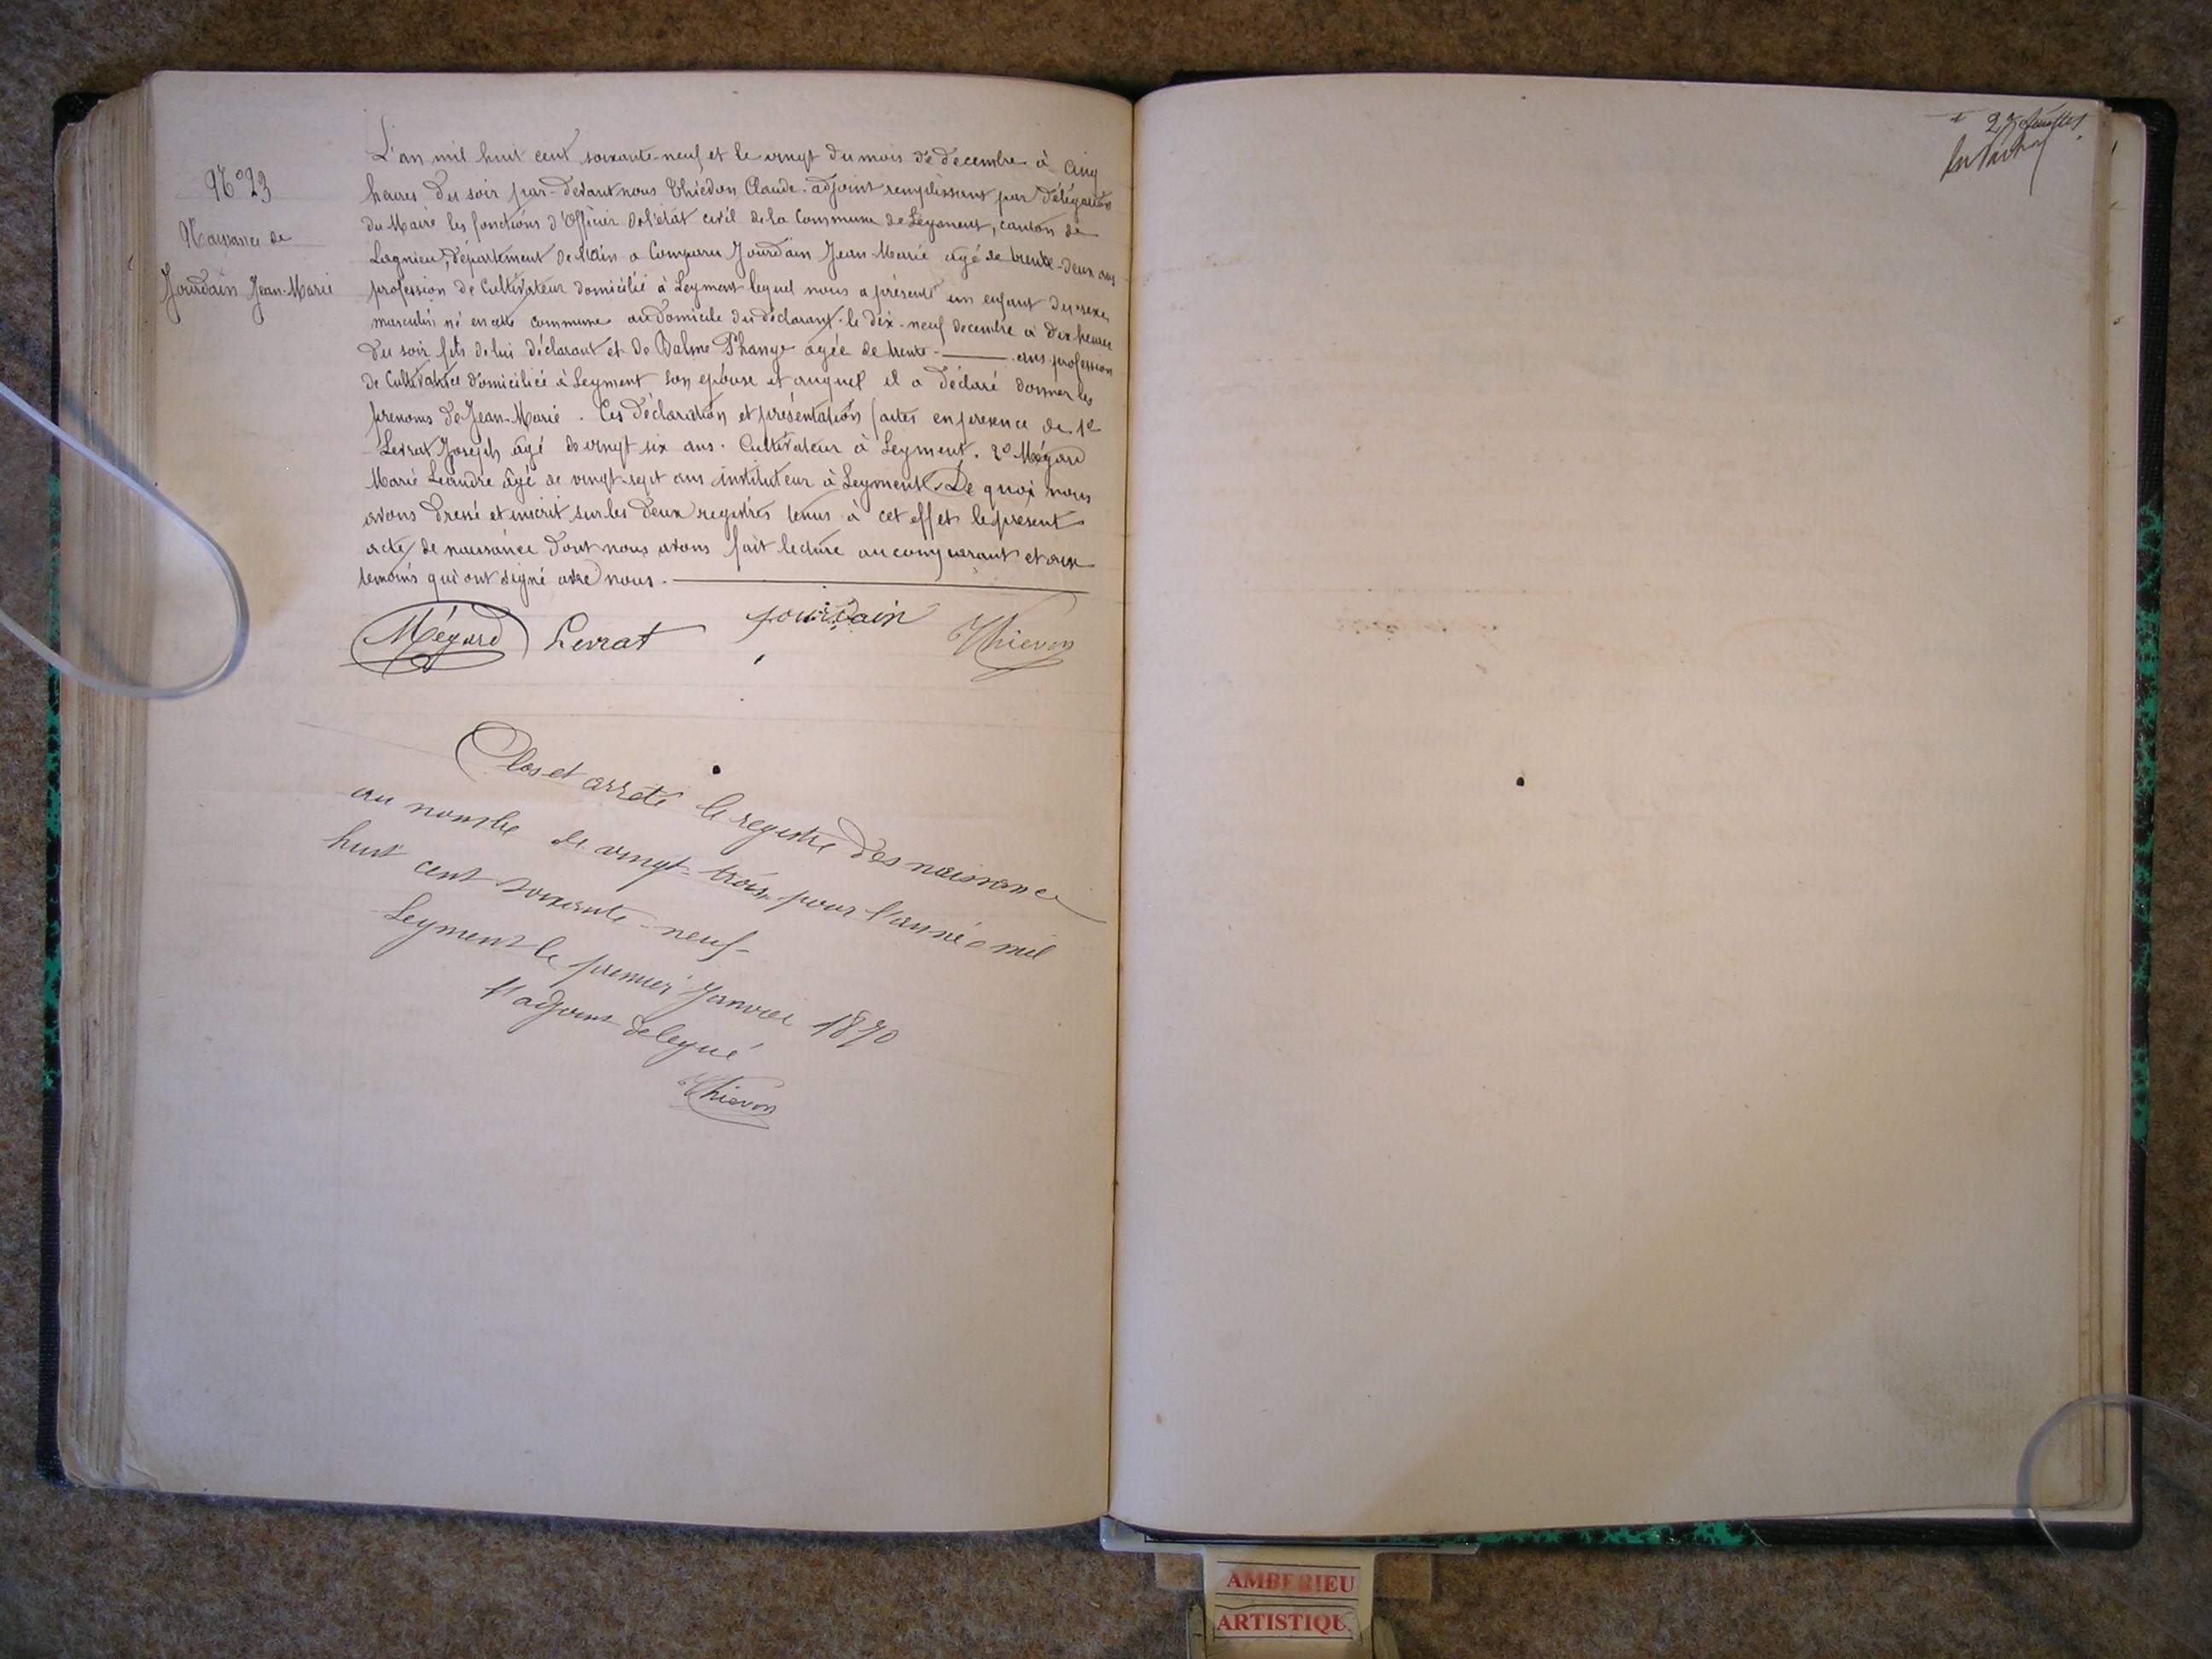 N° 23
Naissance de
Jourdain Jean-Marie
L'an mil huit cent soixante-neuf et le vingt du mois de decembre à cinq
heures du soir par-devant nous Thiévon Claude adjoint remplissant par délégation
du Maire les fonctions d'Officier de l'état civil de la Commune de Leyment, canton de
Lagnieu, département de l'Ain a Comparu Jourdain Jean-Marie agé de trente-deux ans
profession de Cultivateur domicilié à Leyment lequel nous a présenté un enfant du sexe
masculin né en cette commune au domicile du déclarant le dix-neuf decembre à dix heures
du soir fils de lui déclarant et de Balme agée de trente ans profession
de Cultivatrice domiciliée à Leyment son epouse et auquel il a déclaré donner les
prenoms de Jean-Marie. Ces déclaration et présentation faites en presence de 1°
Levrat Joseph agé de vingt six ans. Cultivateur à Leyment. 2° Mégard
Marie Léandre âgé de vingt-sept ans instituteur à Leyment. De quoi nous
avons dressé et inscrit sur les deux registres tenus à cet effet le présent
acte de naissance dont nous avons fait lecture au comparant et aux
temoins qui ont signé avec nous.
Mégard Levrat Jourdain Thievon
Clos et arrété le registre des naissance
au nombre de vingt-trois pour l'année mil
huit cent soixante-neuf
Leyment le premier Janvier 1870
l'adjoint delegué
Thievon
AMBERIEU
ARTISTIQUE